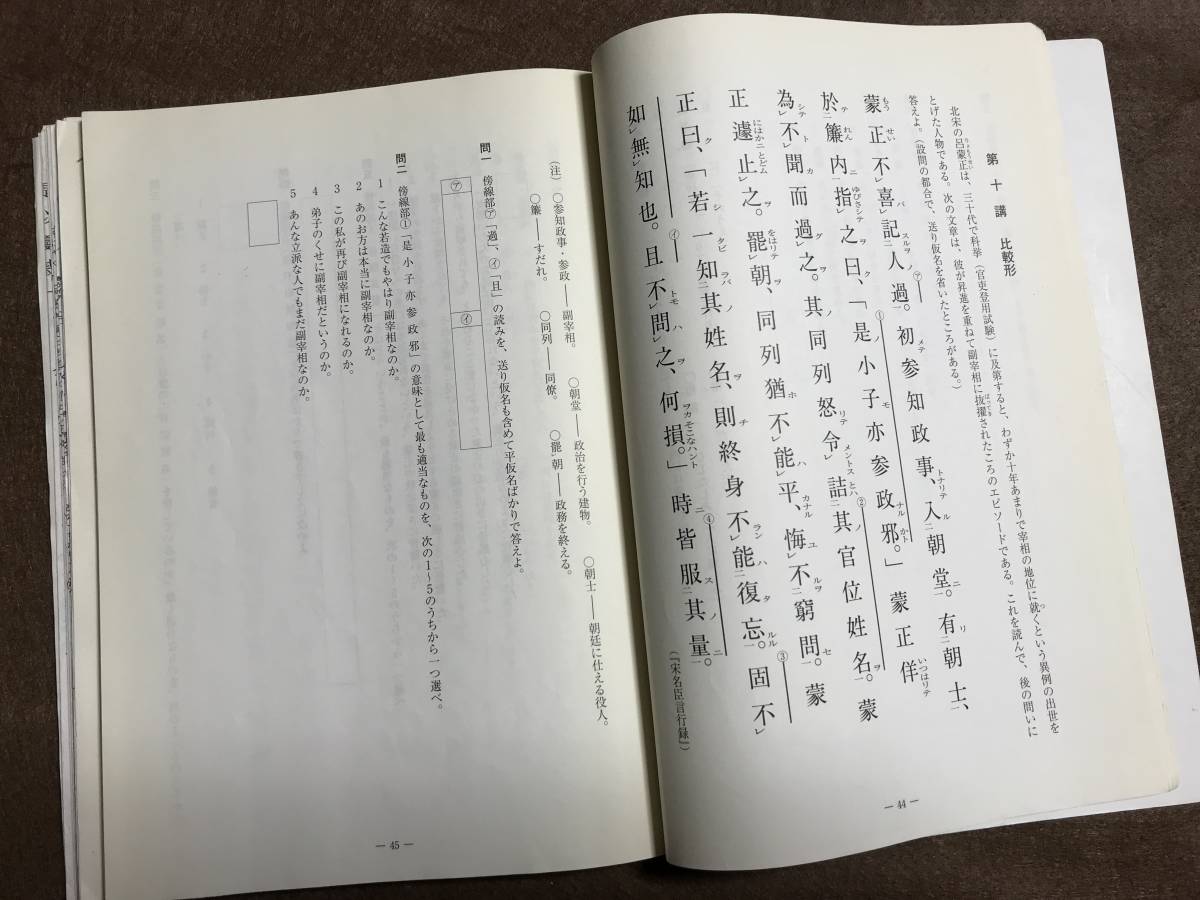 第十講　比較形
北宋の呂蒙正は、三十代で科挙（官吏登用試験）に及第すると、わずか十年あまりで宰相の地位に就くという異例の出世を
とげた人物である。次の文章は、彼が昇進を重ねて副宰相に抜擢されたころのエピソードである。これを読んで、後の問いに
答えよ。（設問の都合で、送り仮名を省いたところがある。）
蒙正不喜記人過。初参知政事、入朝堂。有朝士、
於簾内指之曰、「是小子亦参政邪。」蒙正佯
為不聞而過之。其同列怒令詰其官位姓名。蒙
正遽止之。罷朝、同列猶不能平、悔不窮問。蒙
正曰、「若一知其姓名、則終身不能復忘。固不
如無知也。且不問之、何損。」時皆服其量。
（『宋名臣言行録』）
— 44 —
（注）　○参知政事・参政——副宰相。　○朝堂——政治を行う建物。　○朝士——朝廷に仕える役人。
○簾——すだれ。　○同列——同僚。　○罷朝——政務を終える。
問一　傍線部㋐「過」、㋑「且」の読みを、送り仮名も含めて平仮名ばかりで答えよ。
㋐　㋑
問二　傍線部①「是小子亦参政邪」の意味として最も適当なものを、次の1～5のうちから一つ選べ。
1　こんな若造でもやはり副宰相なのか。
2　あのお方は本当に副宰相なのか。
3　この私が再び副宰相になれるのか。
4　弟子のくせに副宰相だというのか。
5　あんな立派な人でもまだ副宰相なのか。
— 45 —